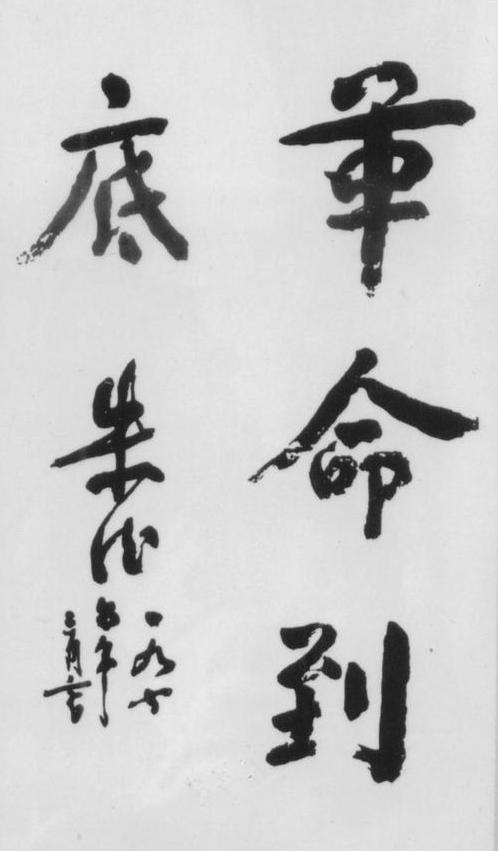 革命到
底
朱德
一九七
五年
三月六日